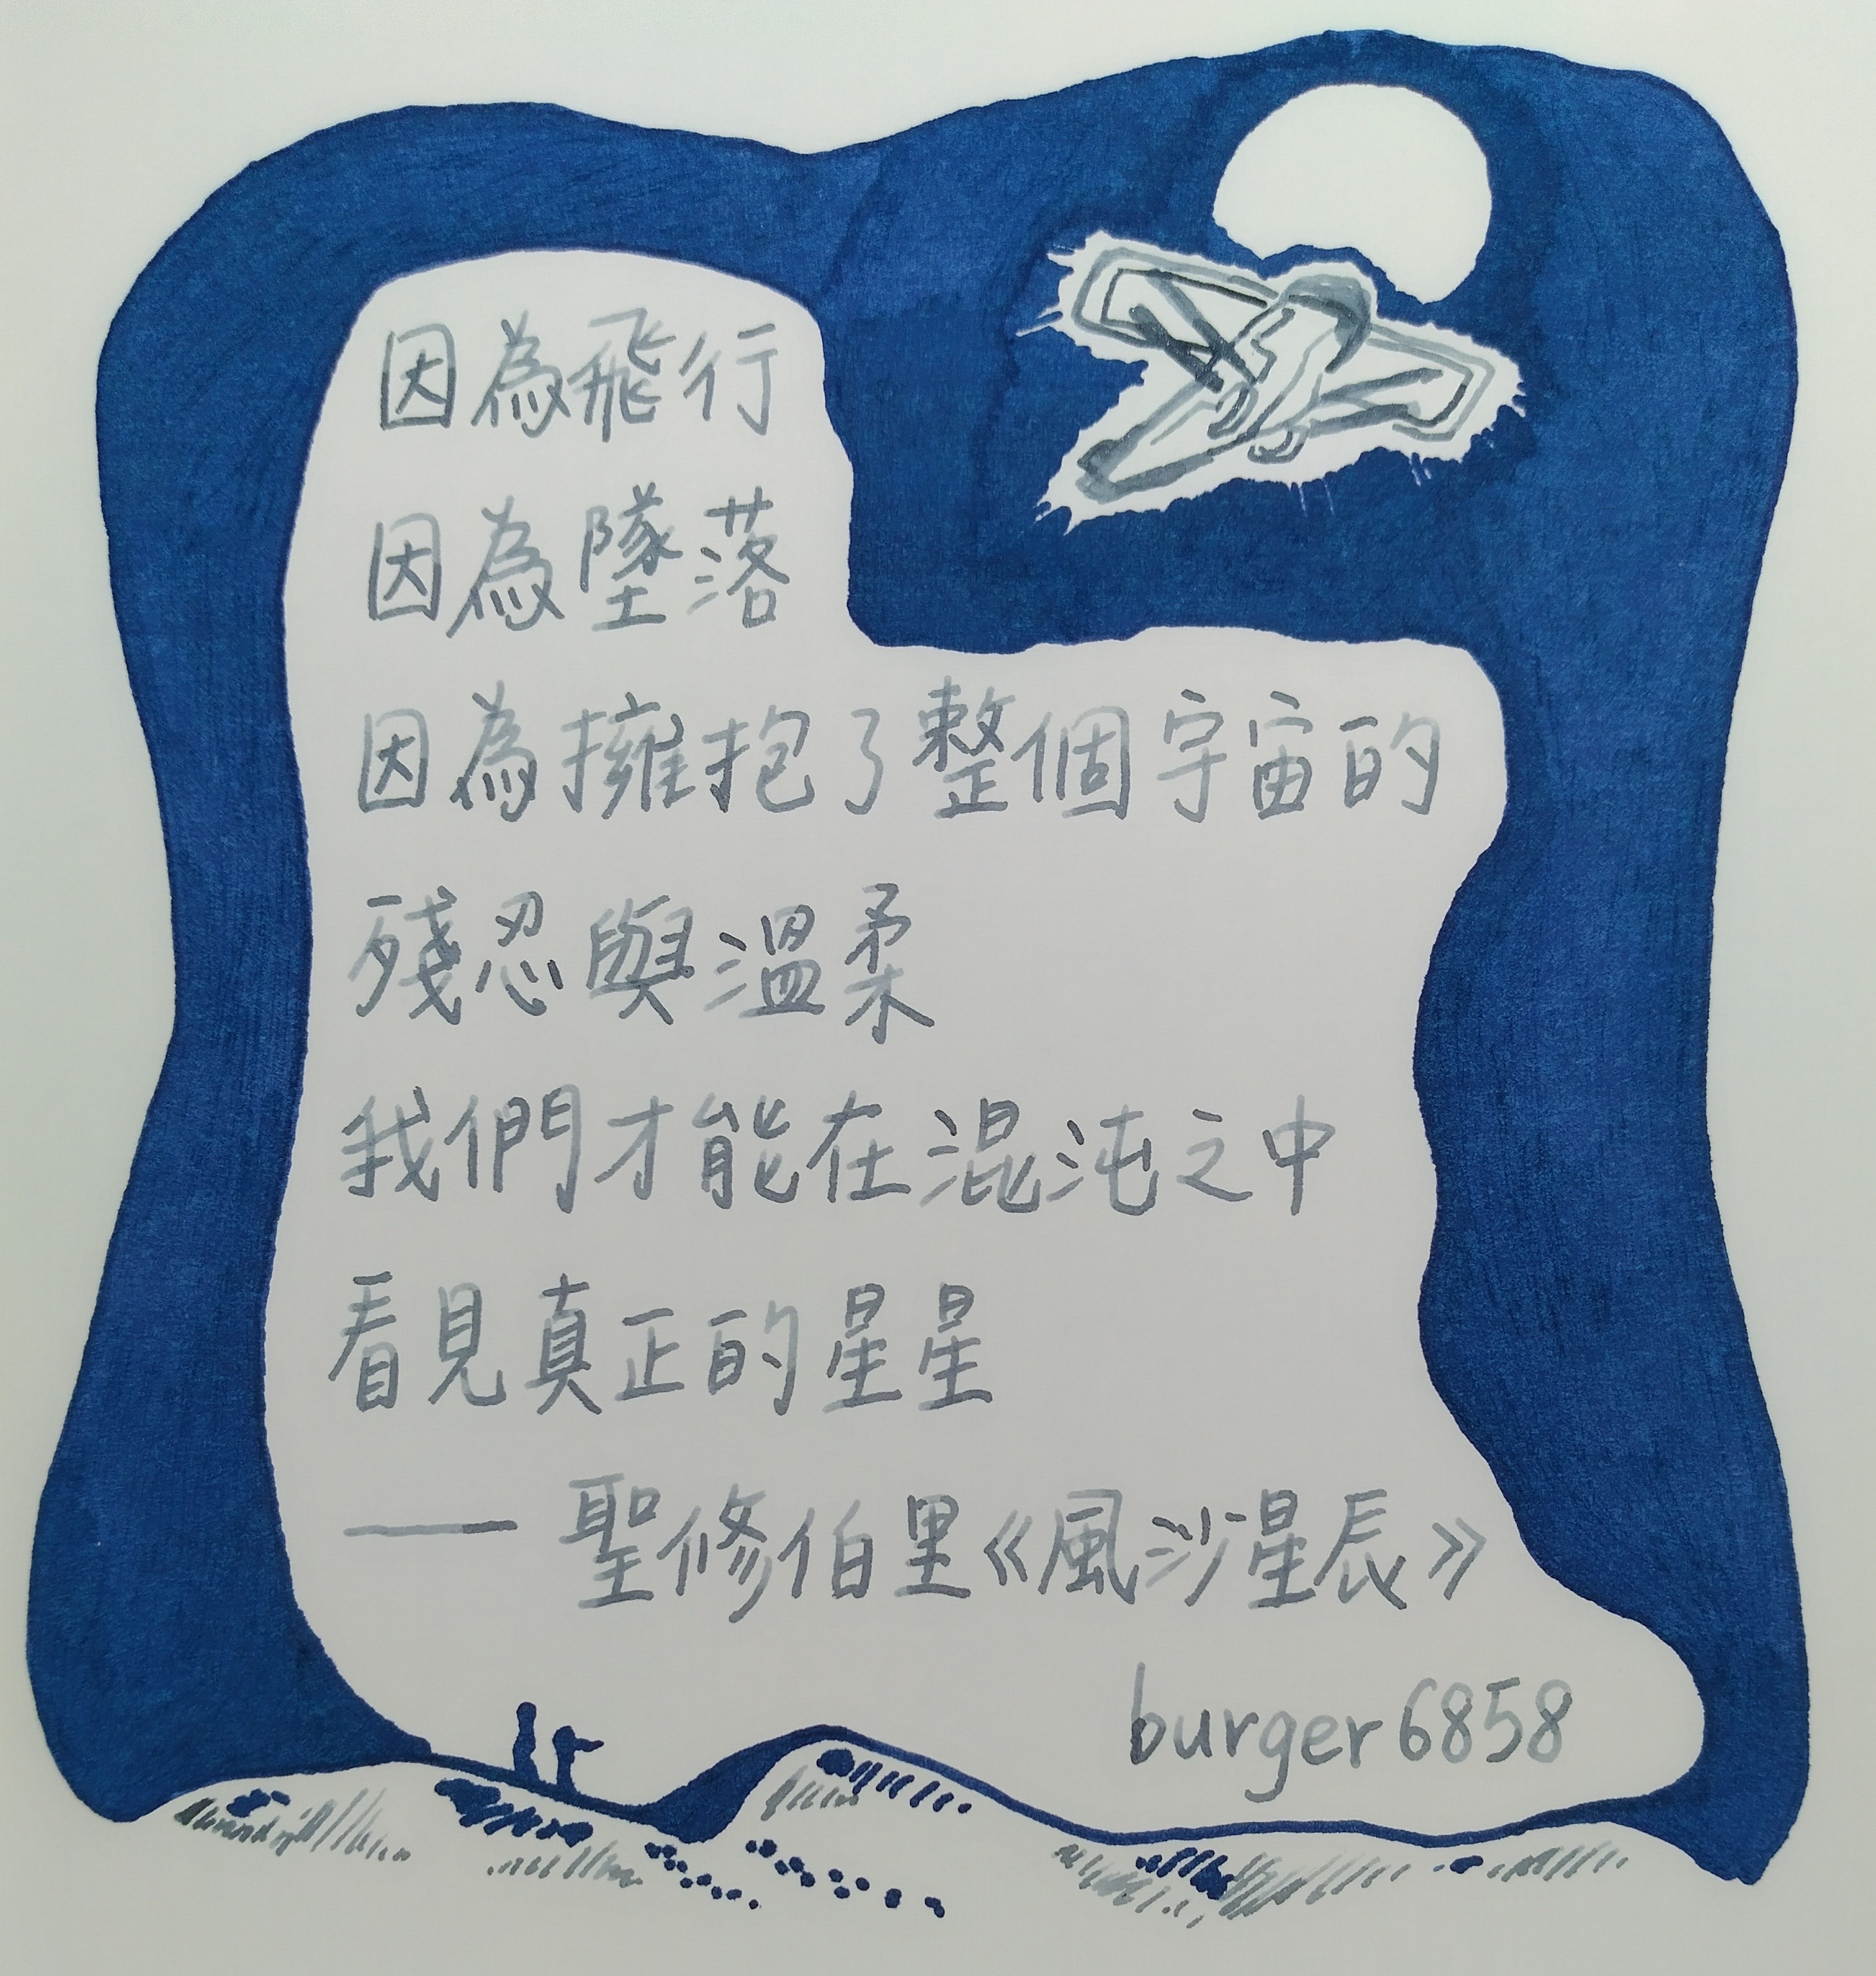 因為飛行
因為墜落
因為擁抱了整個宇宙的
殘忍與溫柔
我們才能在混沌之中
看見真正的星星
—— 聖修伯里《風沙星辰》
burger6858